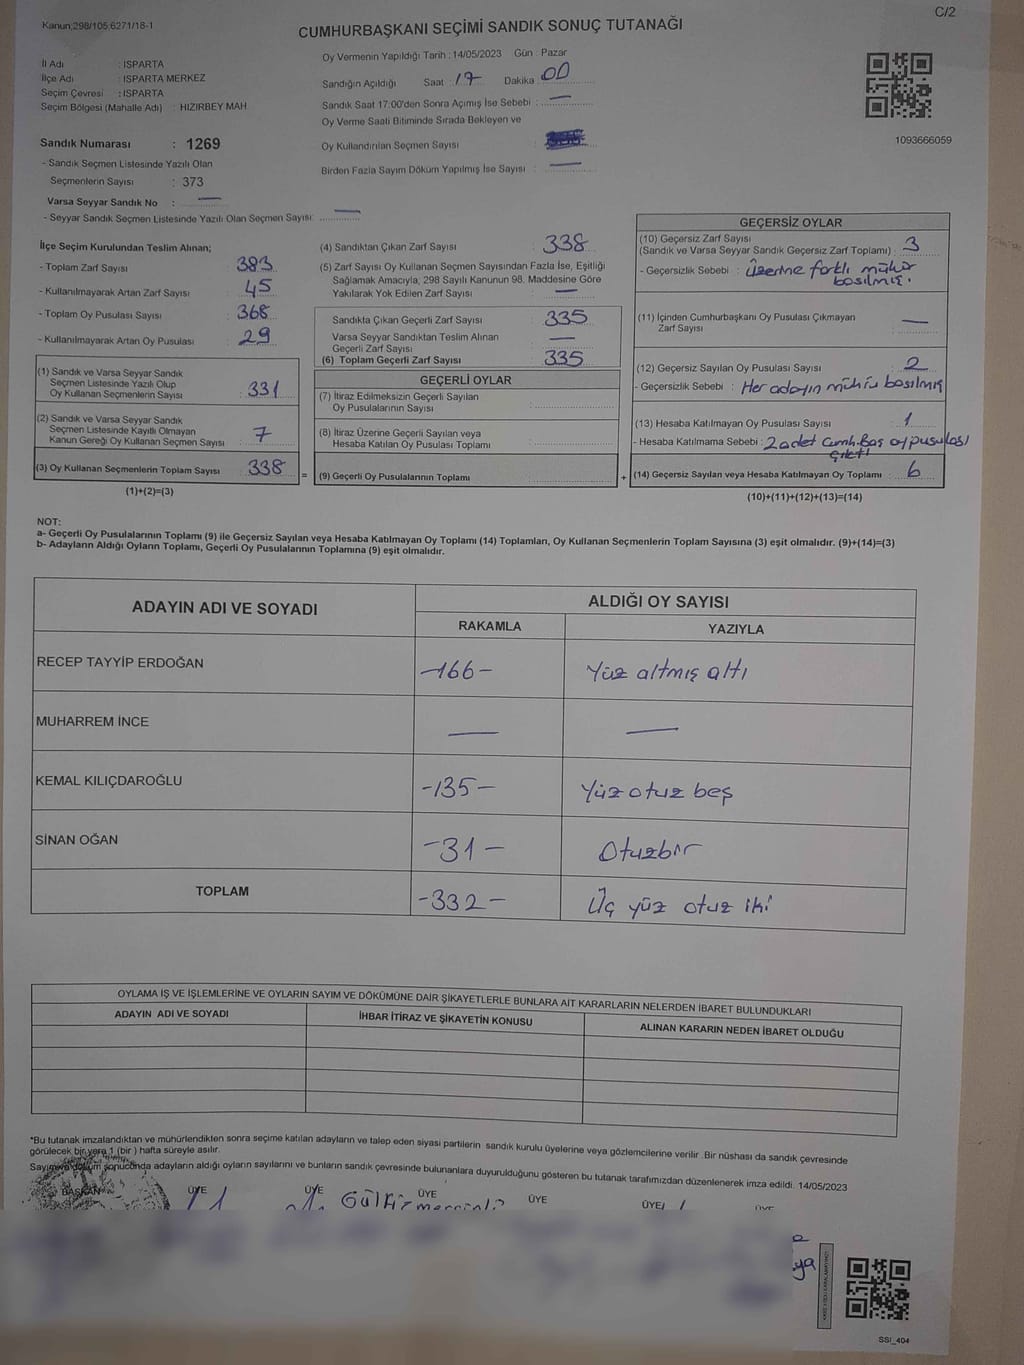 C/2
Kanun;298/105;6271/18-1
CUMHURBAŞKANI SEÇİMİ SANDIK SONUÇ TUTANAĞI
İl Adı : ISPARTA
İlçe Adı : ISPARTA MERKEZ
Seçim Çevresi : ISPARTA
Seçim Bölgesi (Mahalle Adı) : HIZIRBEY MAH
Oy Vermenin Yapıldığı Tarih : 14/05/2023 Gün : Pazar
Sandığın Açıldığı Saat : 17 Dakika : 00
Sandık Saat 17:00'den Sonra Açılmış İse Sebebi : —
Oy Verme Saati Bitiminde Sırada Bekleyen ve
Oy Kullandırılan Seçmen Sayısı :
Birden Fazla Sayım Döküm Yapılmış İse Sayısı : —
1093666059
Sandık Numarası : 1269
- Sandık Seçmen Listesinde Yazılı Olan
Seçmenlerin Sayısı : 373
Varsa Seyyar Sandık No : —
- Seyyar Sandık Seçmen Listesinde Yazılı Olan Seçmen Sayısı: —
İlçe Seçim Kurulundan Teslim Alınan;
- Toplam Zarf Sayısı : 383
- Kullanılmayarak Artan Zarf Sayısı : 45
- Toplam Oy Pusulası Sayısı : 368
- Kullanılmayarak Artan Oy Pusulası : 29
(1) Sandık ve Varsa Seyyar Sandık
Seçmen Listesinde Yazılı Olup
Oy Kullanan Seçmenlerin Sayısı : 331
(2) Sandık ve Varsa Seyyar Sandık
Seçmen Listesinde Kayıtlı Olmayan
Kanun Gereği Oy Kullanan Seçmen Sayısı : 7
(3) Oy Kullanan Seçmenlerin Toplam Sayısı : 338
(1)+(2)=(3)
(4) Sandıktan Çıkan Zarf Sayısı : 338
(5) Zarf Sayısı Oy Kullanan Seçmen Sayısından Fazla İse, Eşitliği
Sağlamak Amacıyla; 298 Sayılı Kanunun 98. Maddesine Göre
Yakılarak Yok Edilen Zarf Sayısı : —
Sandıkta Çıkan Geçerli Zarf Sayısı : 335
Varsa Seyyar Sandıktan Teslim Alınan
Geçerli Zarf Sayısı : —
(6) Toplam Geçerli Zarf Sayısı : 335
GEÇERLİ OYLAR
(7) İtiraz Edilmeksizin Geçerli Sayılan
Oy Pusulalarının Sayısı :
(8) İtiraz Üzerine Geçerli Sayılan veya
Hesaba Katılan Oy Pusulası Toplamı :
= (9) Geçerli Oy Pusulalarının Toplamı :
GEÇERSİZ OYLAR
(10) Geçersiz Zarf Sayısı
(Sandık ve Varsa Seyyar Sandık Geçersiz Zarf Toplamı) : 3
- Geçersizlik Sebebi : Üzerine farklı mühür
basılmış.
(11) İçinden Cumhurbaşkanı Oy Pusulası Çıkmayan
Zarf Sayısı : —
(12) Geçersiz Sayılan Oy Pusulası Sayısı : 2
- Geçersizlik Sebebi : Her adayın mührü basılmış
(13) Hesaba Katılmayan Oy Pusulası Sayısı : 1
- Hesaba Katılmama Sebebi : 2 adet Cumh. Baş oy pusulası
çıktı
+ (14) Geçersiz Sayılan veya Hesaba Katılmayan Oy Toplamı : 6
(10)+(11)+(12)+(13)=(14)
NOT:
a- Geçerli Oy Pusulalarının Toplamı (9) ile Geçersiz Sayılan veya Hesaba Katılmayan Oy Toplamı (14) Toplamları, Oy Kullanan Seçmenlerin Toplam Sayısına (3) eşit olmalıdır. (9)+(14)=(3)
b- Adayların Aldığı Oyların Toplamı, Geçerli Oy Pusulalarının Toplamına (9) eşit olmalıdır.
ADAYIN ADI VE SOYADI
ALDIĞI OY SAYISI
RAKAMLA YAZIYLA
RECEP TAYYİP ERDOĞAN -166- Yüz altmış altı
MUHARREM İNCE — —
KEMAL KILIÇDAROĞLU -135- Yüz otuz beş
SİNAN OĞAN -31- Otuzbir
TOPLAM -332- Üç yüz otuz iki
OYLAMA İŞ VE İŞLEMLERİNE VE OYLARIN SAYIM VE DÖKÜMÜNE DAİR ŞİKAYETLERLE BUNLARA AİT KARARLARIN NELERDEN İBARET BULUNDUKLARI
ADAYIN ADI VE SOYADI İHBAR İTİRAZ VE ŞİKAYETİN KONUSU ALINAN KARARIN NEDEN İBARET OLDUĞU
*Bu tutanak imzalandıktan ve mühürlendikten sonra seçime katılan adayların ve talep eden siyasi partilerin sandık kurulu üyelerine veya gözlemcilerine verilir .Bir nüshası da sandık çevresinde
görülecek bir yere 1 (bir ) hafta süreyle asılır.
Sayım ve döküm sonucunda adayların aldığı oyların sayılarını ve bunların sandık çevresinde bulunanlara duyurulduğunu gösteren bu tutanak tarafımızdan düzenlenerek imza edildi. 14/05/2023
BAŞKAN ÜYE ÜYE ÜYE ÜYE ÜYE ÜYE
SSI_404